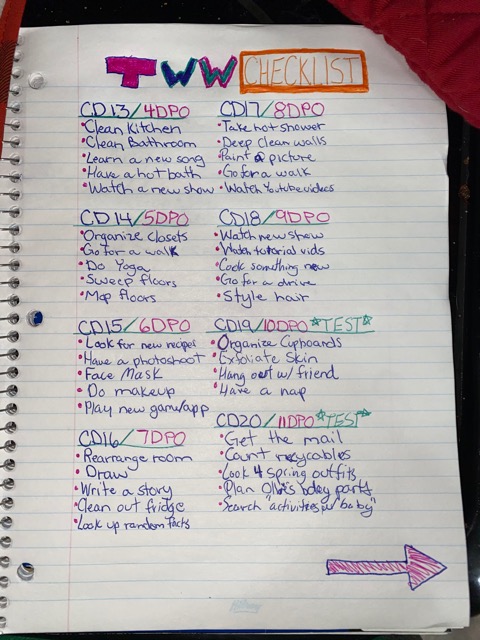 TWW CHECKLIST
CD13/4DPO
•Clean Kitchen
•Clean Bathroom
•Learn a new song
•Have a hot bath
•Watch a new show
CD14/5DPO
•Organize closets
•Go for a walk
•Do Yoga
•Sweep floors
•Mop floors
CD15/6DPO
•Look for new recipes
•Have a photoshoot
•Face Mask
•Do makeup
•Play new game/app
CD16/7DPO
•Rearrange room
•Draw
•Write a story
•Clean out fridge
•Look up random facts
CD17/8DPO
•Take hot shower
•Deep clean walls
•Paint a picture
•Go for a walk
•Watch Youtube videos
CD18/9DPO
•Watch new show
•Watch tutorial vids
•Cook something new
•Go for a drive
•Style hair
CD19/10DPO ☆TEST☆
•Organize Cupboards
•Exfoliate Skin
•Hang out w/ friend
•Have a nap
CD20/11DPO ☆TEST☆
•Get the mail
•Count recycables
•Look 4 spring outfits
•Plan bday party
•Search "activities w/ baby"